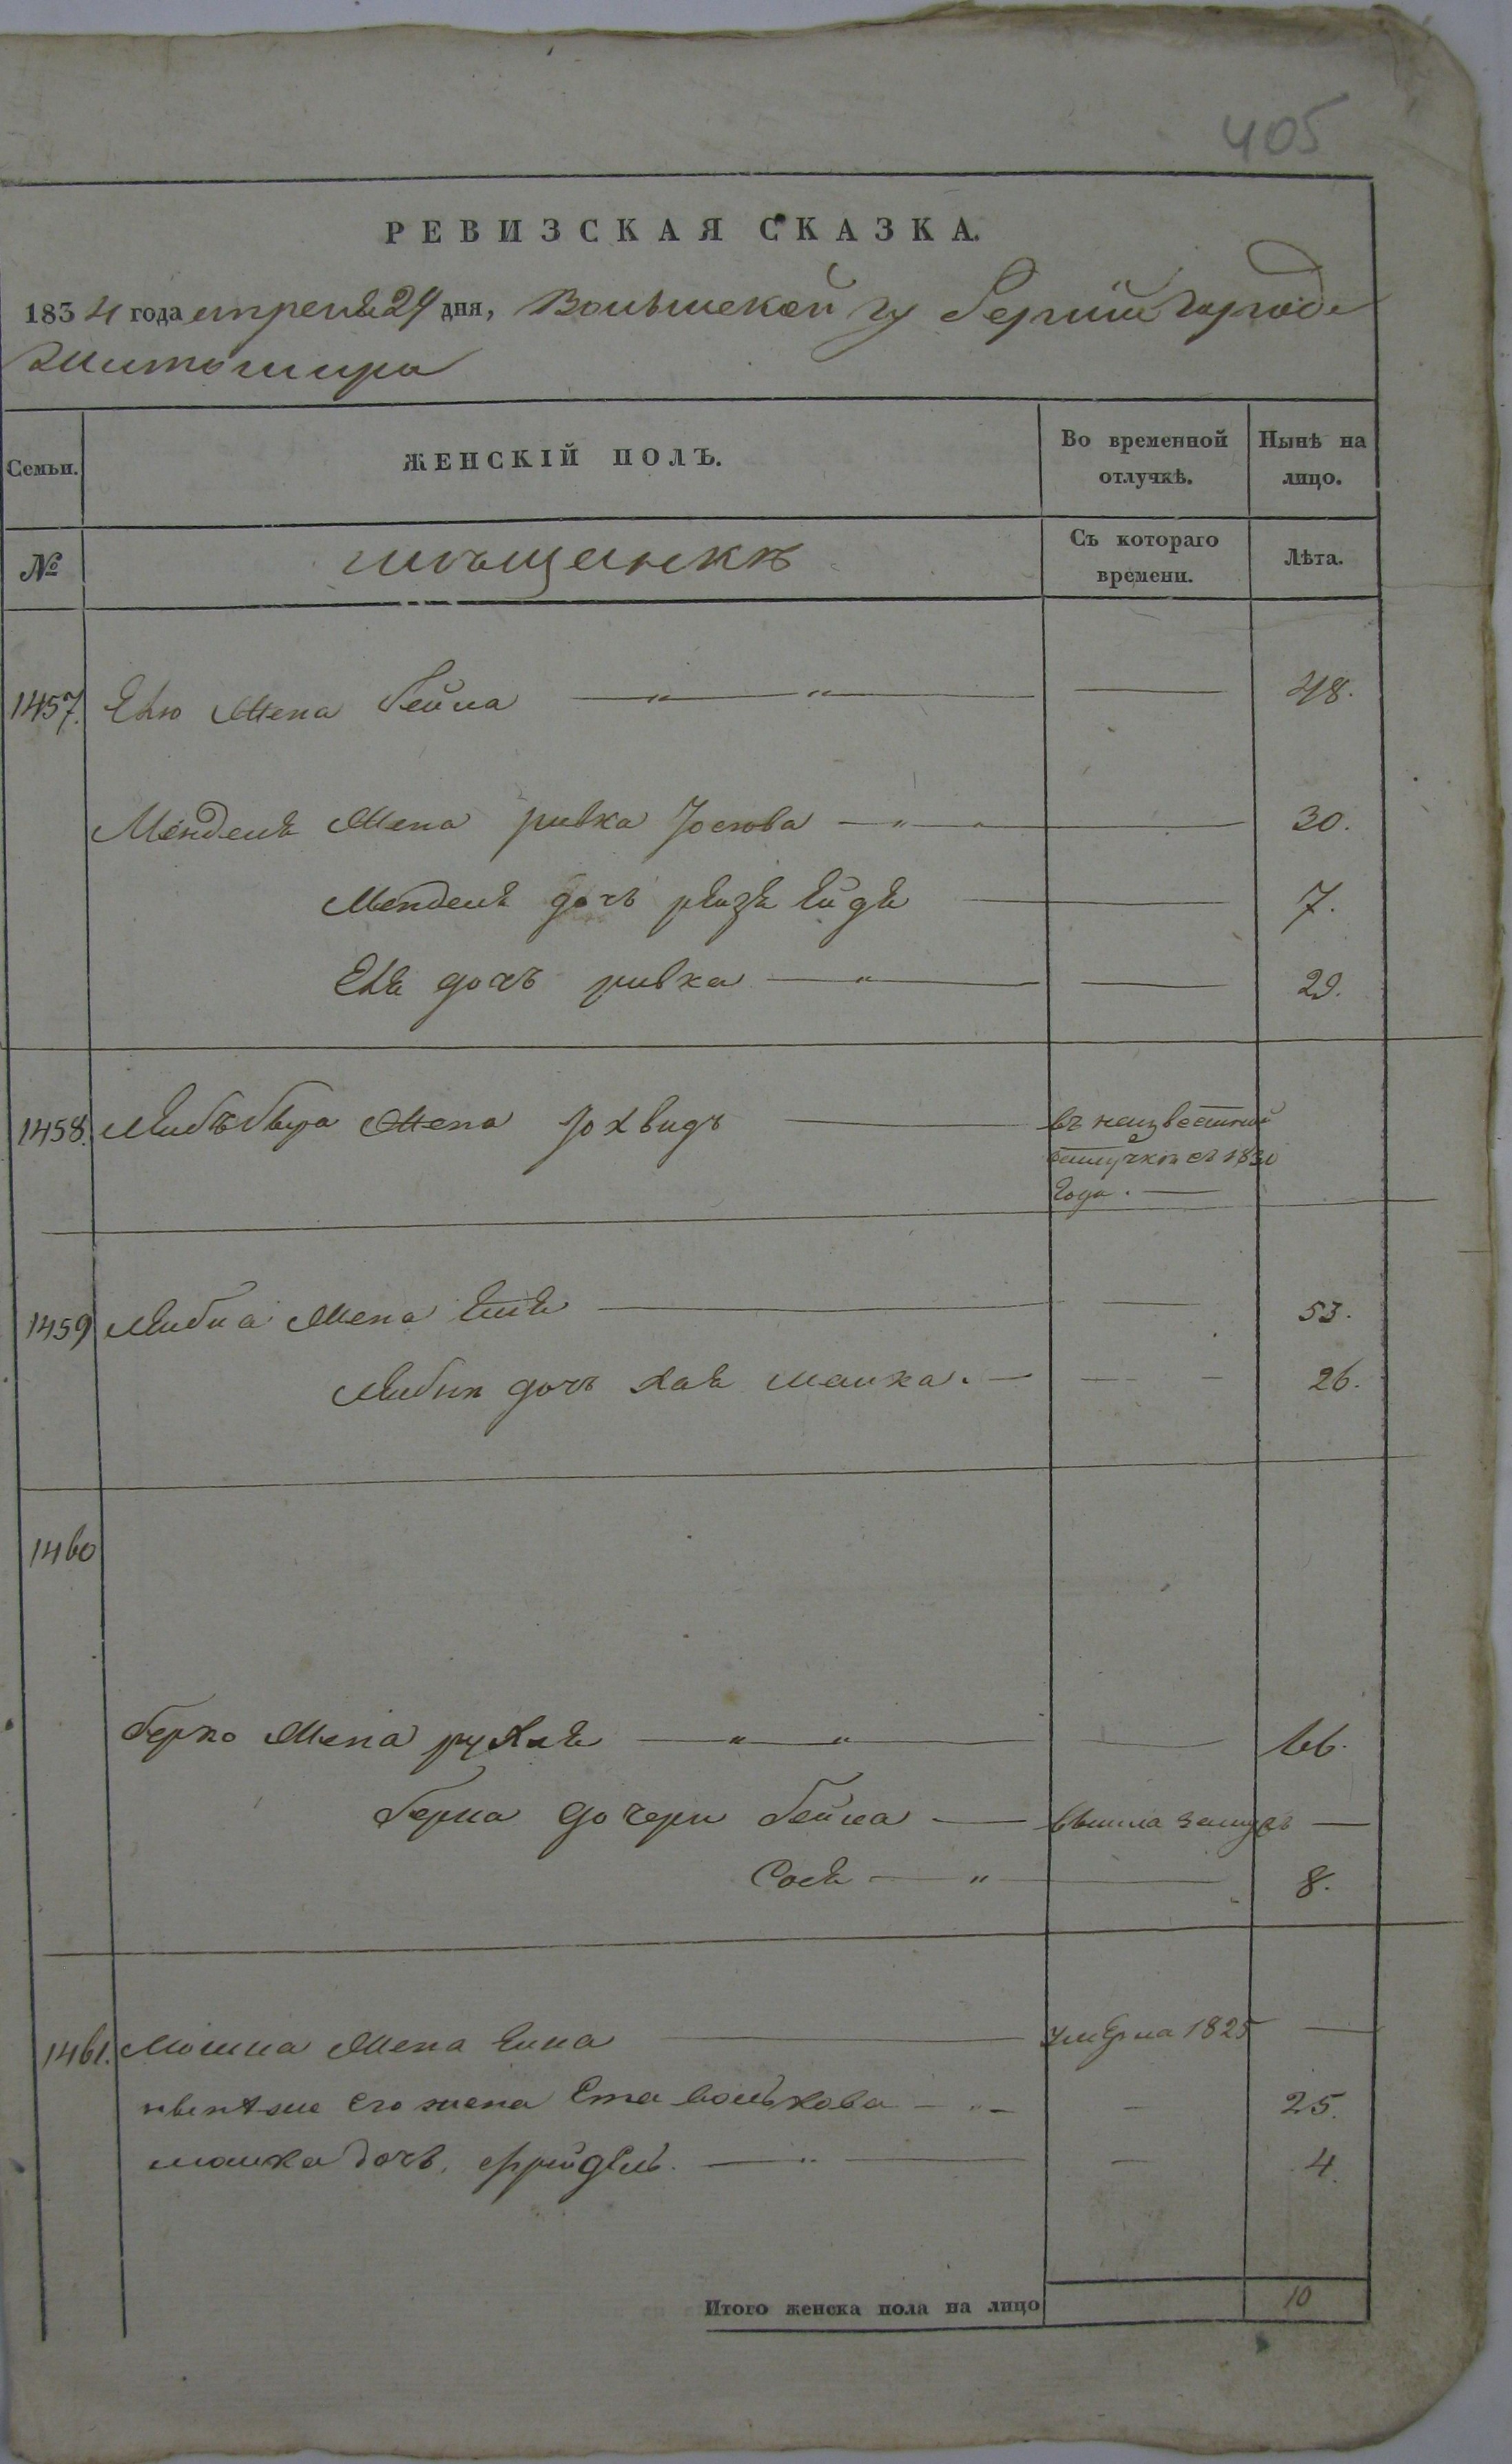 405
РЕВИЗСКАЯ СКАЗКА.
1834 года апреля 24 дня, Волынской губернии города
Житомира
Семьи.
ЖЕНСКІЙ ПОЛЪ.
Во временной отлучкѣ.
Нынѣ на лицо.
№
мѣщанки
Съ котораго времени.
Лѣта.
1457. жена Бейла 48.
Менделя жена ривка Іосіова 30.
Менделя дочь 7.
дочь ривка 29.
1458. жена Іохвидъ въ неизвестной
отлучки съ 1830
года.
1459 Лейбиа жена 53.
Лейбы дочь хая малка. 26.
1460
Берко жена рухля 66.
Берка дочери Бейла вышла замужъ
Сося 8.
1461. Мошка жена умерла 1825
его жена Ета волькова 25.
малка дочь, фрейдель. 4.
Итого женска пола на лицо 10